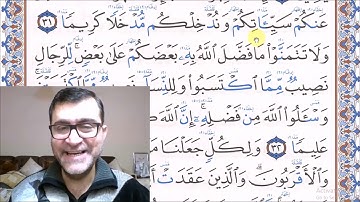 عَنكُمْ سَيِّـَٔاتِكُمْ وَنُدْخِلْكُم مُّدْخَلًا كَرِيمًا ٣١
وَلَا تَتَمَنَّوْا۟ مَا فَضَّلَ ٱللَّهُ بِهِۦ بَعْضَكُمْ عَلَىٰ بَعْضٍ ۚ لِّلرِّجَالِ
نَصِيبٌ مِّمَّا ٱكْتَسَبُوا۟ وَلِلنِّسَآءِ
وَسْـَٔلُوا۟ ٱللَّهَ مِن فَضْلِهِۦٓ ۗ إِنَّ ٱللَّهَ
عَلِيمًا ٣٢ وَلِكُلٍّ جَعَلْنَا
وَٱلْأَقْرَبُونَ ۚ وَٱلَّذِينَ عَقَدَتْ